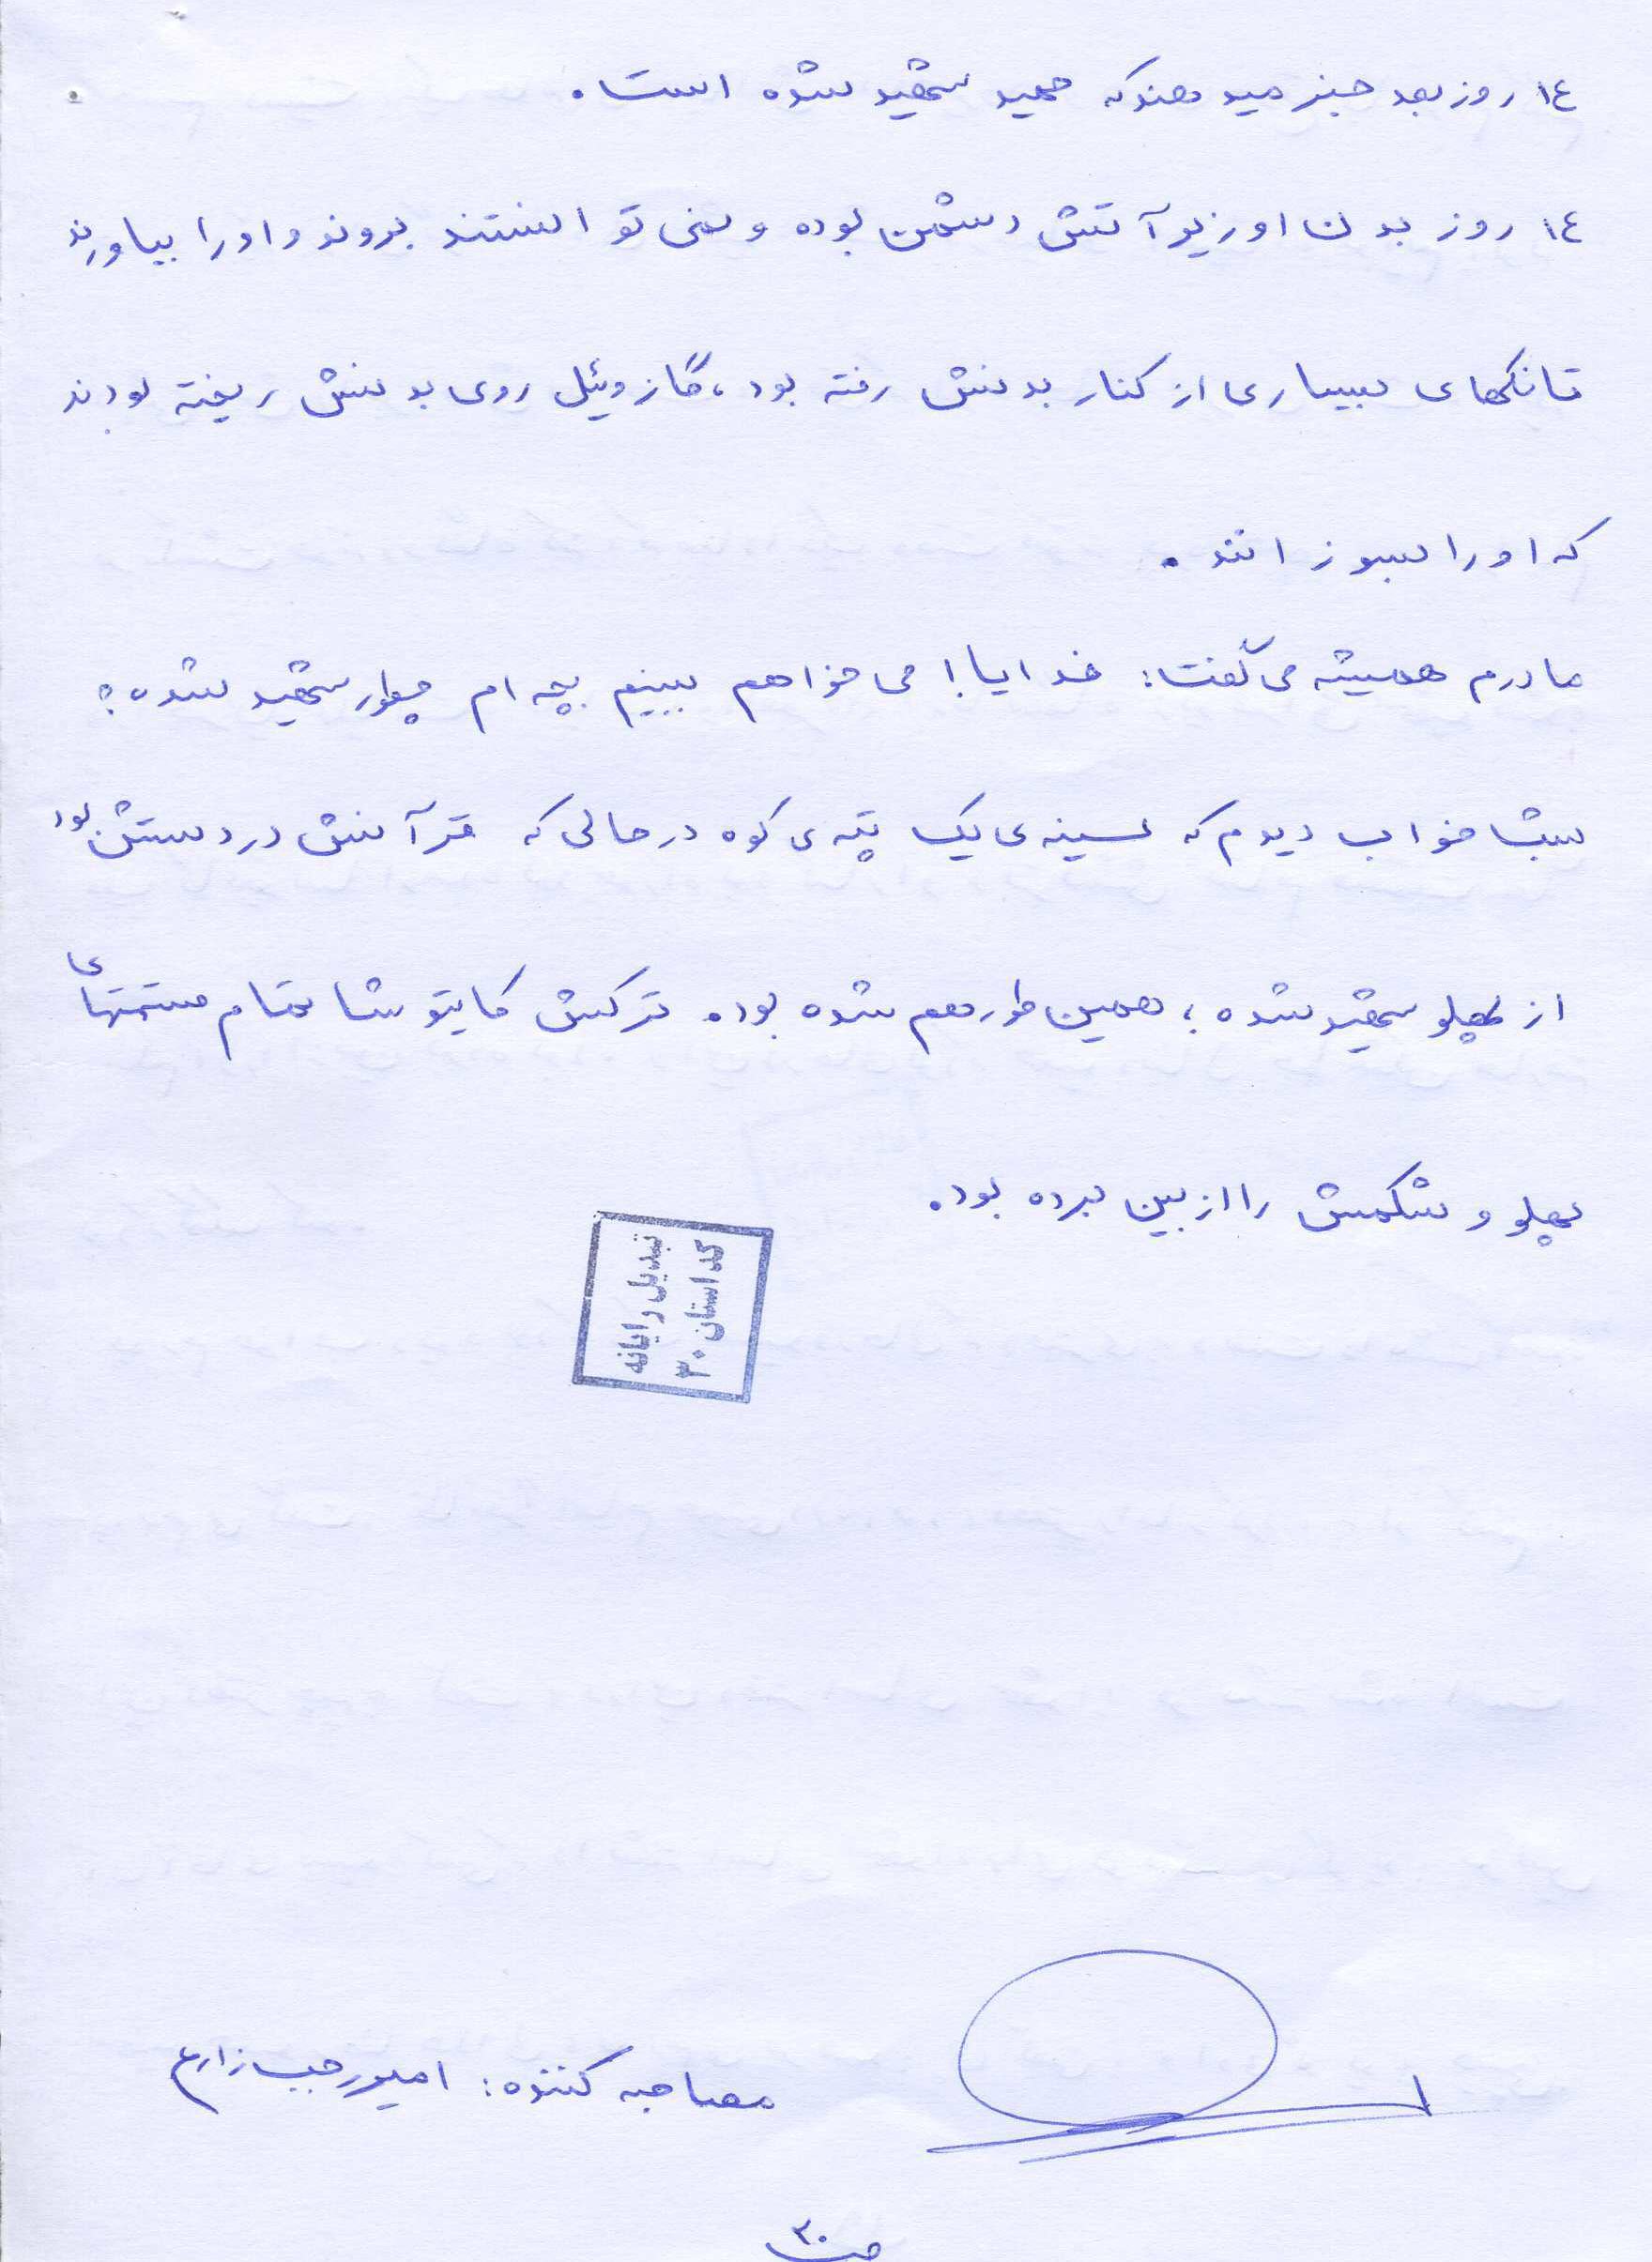 ١٤ روز بعد خبر میدهند که حمید شهید شده است.
١٤ روز بدن او زیر آتش دشمن بوده و نمی توانستند بروند و او را بیاورند
تانکهای بسیاری از کنار بدنش رفته بود، گازوئیل روی بدنش ریخته بودند
که او را بسوزانند.
مادرم همیشه می گفت: خدایا! می خواهم ببینم بچه ام چطور شهید شده؟
شب خواب دیدم که سینه ی یک تپه ی کوه در حالی که قرآنش در دستش بود
از پهلو شهید شده؛ همین طور هم شده بود. ترکش کاتیوشا تمام قسمتهای
پهلو و شکمش را از بین برده بود.
تبدیل رایانه
کد استان ٣٠
مصاحبه کننده: امیر رجب زارع
ص ٣٠